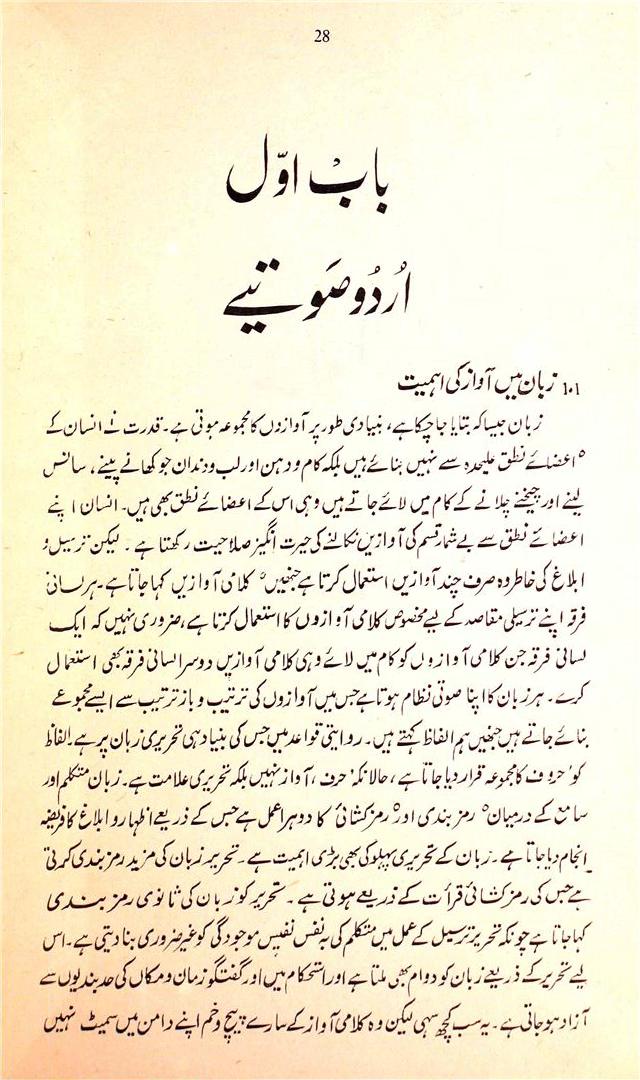 28
بابْ اوّل
اُردُو صَوتیے
۱۰۱ زبان میں آواز کی اہمیت
زبان جیسا کہ بتایا جا چکا ہے، بنیادی طور پر آوازوں کا مجموعہ ہوتی ہے۔ قدرت نے انسان کے
'اعضائے نطق علیحدہ سے نہیں بنائے ہیں بلکہ کام و دہن اور لب و دندان جو کھانے پینے، سانس
لینے اور چیخنے چلانے کے کام میں لائے جاتے ہیں وہی اس کے اعضائے نطق بھی ہیں۔ انسان اپنے
اعضائے نطق سے بے شمار قسم کی آوازیں نکالنے کی حیرت انگیز صلاحیت رکھتا ہے۔ لیکن ترسیل و
ابلاغ کی خاطر وہ صرف چند آوازیں استعمال کرتا ہے جنھیں 'کلامی آوازیں کہا جاتا ہے۔ ہر لسانی
فرقہ اپنے ترسیلی مقاصد کے لیے مخصوص کلامی آوازوں کا استعمال کرتا ہے، ضروری نہیں کہ ایک
لسانی فرقہ جن کلامی آوازوں کو کام میں لائے وہی کلامی آوازیں دوسرا لسانی فرقہ بھی استعمال
کرے۔ ہر زبان کا اپنا صوتی نظام ہوتا ہے جس میں آوازوں کی ترتیب و باز ترتیب سے ایسے مجموعے
بنائے جاتے ہیں جنھیں ہم الفاظ کہتے ہیں۔ روایتی قواعد میں جس کی بنیاد ہی تحریری زبان پر ہے۔ الفاظ
کو' حروف کا مجموعہ قرار دیا جاتا ہے، حالانکہ' حرف، آواز نہیں بلکہ تحریری علامت ہے۔ زبان متکلم اور
سامع کے درمیان' رمز بندی اور' رمز کشائی' کا دوہرا عمل ہے جس کے ذریعے اظہار و ابلاغ کا فریضہ
انجام دیا جاتا ہے۔ زبان کے تحریری پہلو کی بھی بڑی اہمیت ہے۔ تحریر زبان کی مزید رمز بندی کرتی
ہے جس کی رمز کشائی قرأت کے ذریعے ہوتی ہے۔ تحریر کو زبان کی ثانوی رمز بندی
کہا جاتا ہے چونکہ تحریر ترسیل کے عمل میں متکلم کی بہ نفس نفیس موجودگی کو غیر ضروری بنا دیتی ہے۔ اس
لیے تحریر کے ذریعے زبان کو دوام بھی ملتا ہے اور استحکام میں اور گفتگو زمان و مکاں کی حد بندیوں سے
آزاد ہو جاتی ہے۔ یہ سب کچھ سہی لیکن وہ کلامی آواز کے سارے پیچ و خم اپنے دامن میں سمیٹ نہیں